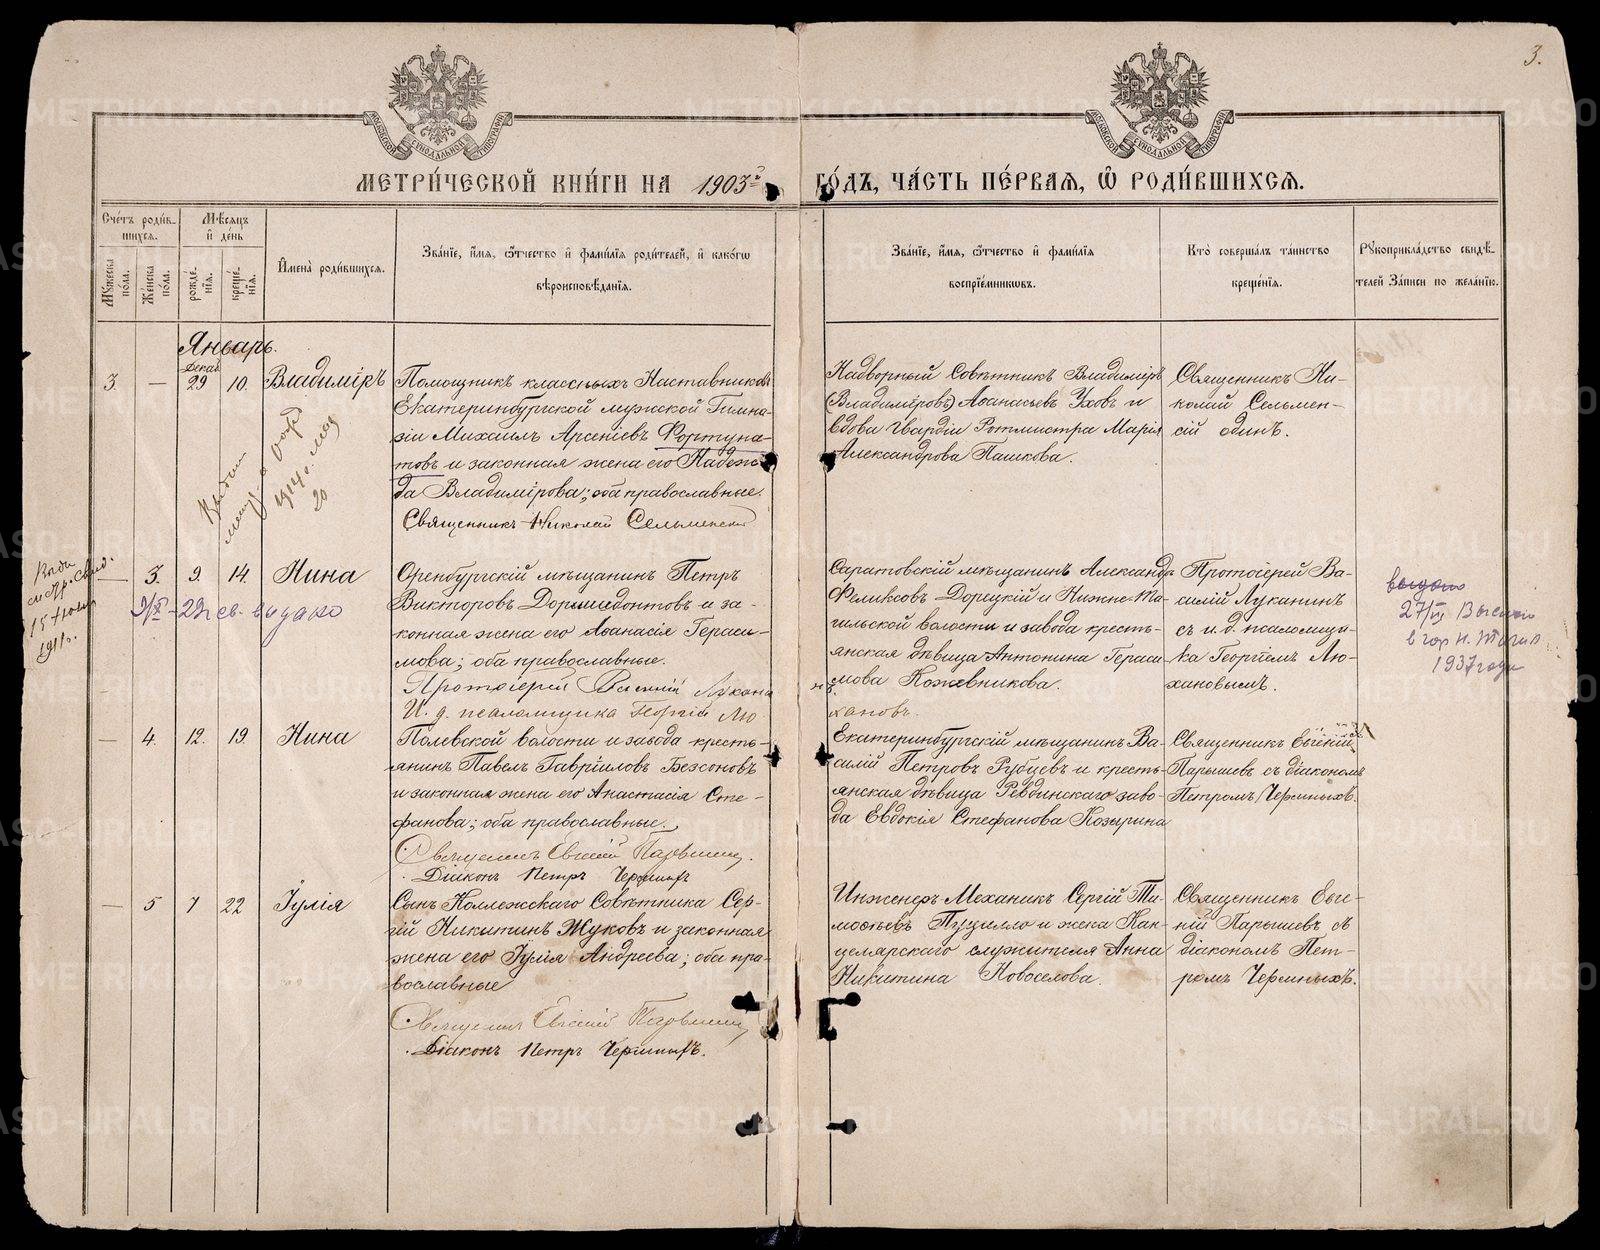 3.
МОСКОВСКОЙ СѴНОДАЛЬНОЙ ТИПОГРАФІИ
МОСКОВСКОЙ СѴНОДАЛЬНОЙ ТИПОГРАФІИ
МЕТРИ́ЧЕСКОЙ КНИ́ГИ НА 1903й ГО́ДЪ, ЧА́СТЬ ПЕ́РВАЯ, Ѡ РОДИ́ВШИХСЯ.
Сче́тъ роди́в-
шихся.
Мꙋжеска по́ла.
Же́нска по́ла.
Мѣ́сяцъ
и҆ де́нь
рожде́-
нія.
креще́-
нія.
И҆мена̀ роди́вшихся.
Зва́ніе, и҆́мя, ѻ҆́тчество и҆ фами́лія роди́телей, и҆ како́гѡ
вѣроисповѣ́данія.
Зва́ніе, и҆́мя, ѻ҆́тчество и҆ фами́лія
воспріе́мниковъ.
Кто̀ соверша́лъ та́инство
креще́нія.
Рꙋкоприкла́дство свидѣ́-
телей За́писи по жела́нію.
Январь.
3.
—
Декаб
29
10.
Владиміръ
Помощникъ классныхъ Наставниковъ
Екатеринбургской мужской Гимна-
зіи Михаилъ Арсеніевъ Фортуна-
товъ и законная жена его Надеж-
да Владимірова; оба православные.
Священникъ Николай Сельменскій
Надворный Совѣтникъ Владиміръ
(Владиміровъ) Аѳанасьевъ Уховъ и
вдова Гвардіи Ротмистра Марія
Александрова Пашкова.
Священникъ Ни-
колай Сельмен-
сій одинъ.
1914 г. мая
20
—
3.
9.
14.
Нина
Оренбургскій мѣщанинъ Петръ
Викторовъ Доримедонтовъ и за-
конная жена его Аѳанасія Гераси-
мова; оба православные.
Протоіерей Василій Лукани
нъ.
И. д. псаломщика Георгій Лю
хановъ.
Саратовскій мѣщанинъ Александръ
Феликсовъ Дорецкій и Нижне-Та-
гильской волости и завода кресть-
янская дѣвица Антонина Гераси-
мова Кожевникова.
Протоіерей Ва-
силій Луканинъ
съ и. д. псаломщи-
ка Георгіемъ Лю-
хановымъ.
Выдн
метр. свид.
15 Іюня
1911 г.
св. выдано
выдано
27/
в гор. Н. Тагил
1937 года
—
4.
12.
19.
Нина
Полевской волости и завода кресть-
янинъ Павелъ Гавріиловъ Безсоновъ
и законная жена его Анастасія Сте-
фанова; оба православные.
Священникъ Евгеній Парышевъ.
Діаконъ Петръ Черныхъ
Екатеринбургскій мѣщанинъ Ва-
силій Петровъ Рубцевъ и кресть-
янская дѣвица Ревдинскаго заво-
да Евдокія Стефанова Козырина
Священникъ Евгеній
Парышевъ съ діакономъ
Петромъ Черныхъ.
—
5
7
22
Іулія
Сынъ Коллежскаго Совѣтника Сер-
гій Никитинъ Жуковъ и законная
жена его Іулія Андреева; оба пра-
вославные
Священникъ Евгеній Парышевъ
Діаконъ Петръ Черныхъ.
Инженеръ-Механикъ Сергій Ти-
моѳеевъ Пузилло и жена Кан-
целярскаго служителя Анна
Никитина Новоселова.
Священникъ Евге-
ній Парышевъ съ
діакономъ Пет-
ромъ Черныхъ.
METRIKI.GASO-URAL.RU